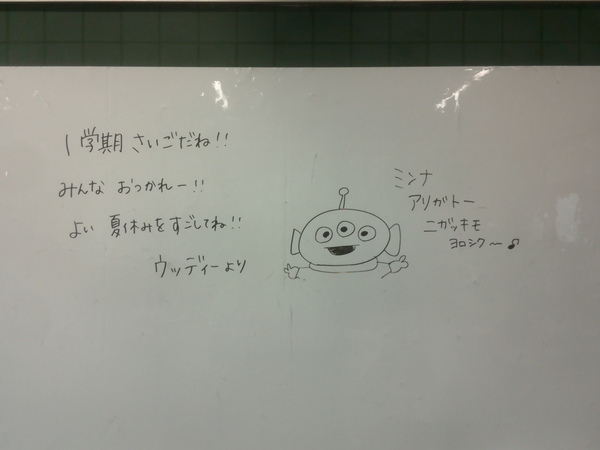 1学期 さいごだね!!
みんな おつかれー!!
よい 夏休みをすごしてね!!
ウッディーより
ミンナ
アリガトー
ニガッキモ
ヨロシク〜♪